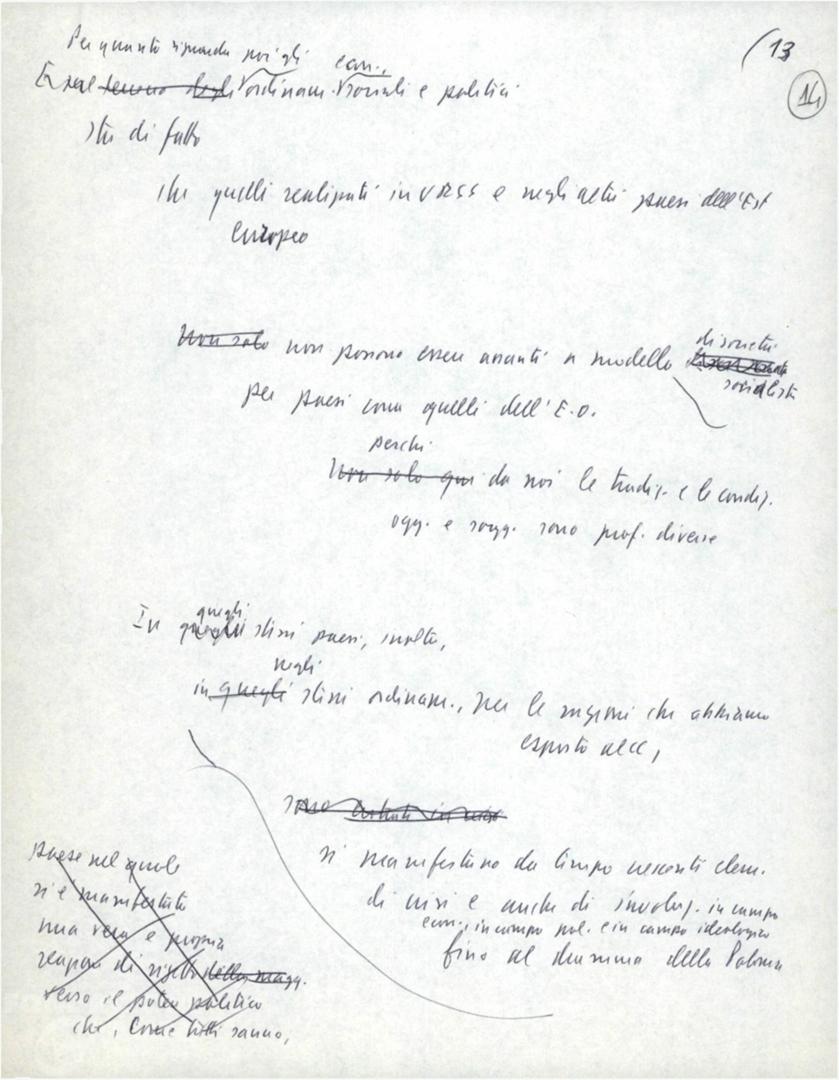 (13
14
Per quanto riguarda poi gli econ.,
E sul terreno degli ordinam. sociali e politici
sta di fatto
che quelli realizzati in URSS e negli altri paesi dell'Est
Europeo
Non solo non possono essere assunti a modello di società
socialista
per paesi come quelli dell'E.O.
perché
Non solo qui da noi le tradiz. e le condiz.
ogg. e sogg. sono prof. diverse
quegli
In stessi paesi, inoltre,
negli
in quegli stessi ordinam., per le ragioni che abbiamo
esposto al CC,
sono
si manifestano da tempo crescenti elem.
di crisi e anche di involuz. in campo
econ., in campo pol. e in campo ideologico
fino al dramma della Polonia
paese nel quale
si è manifestata
una vera e propria
reazione di rigetto della magg.
verso il potere politico
che, come tutti sanno,